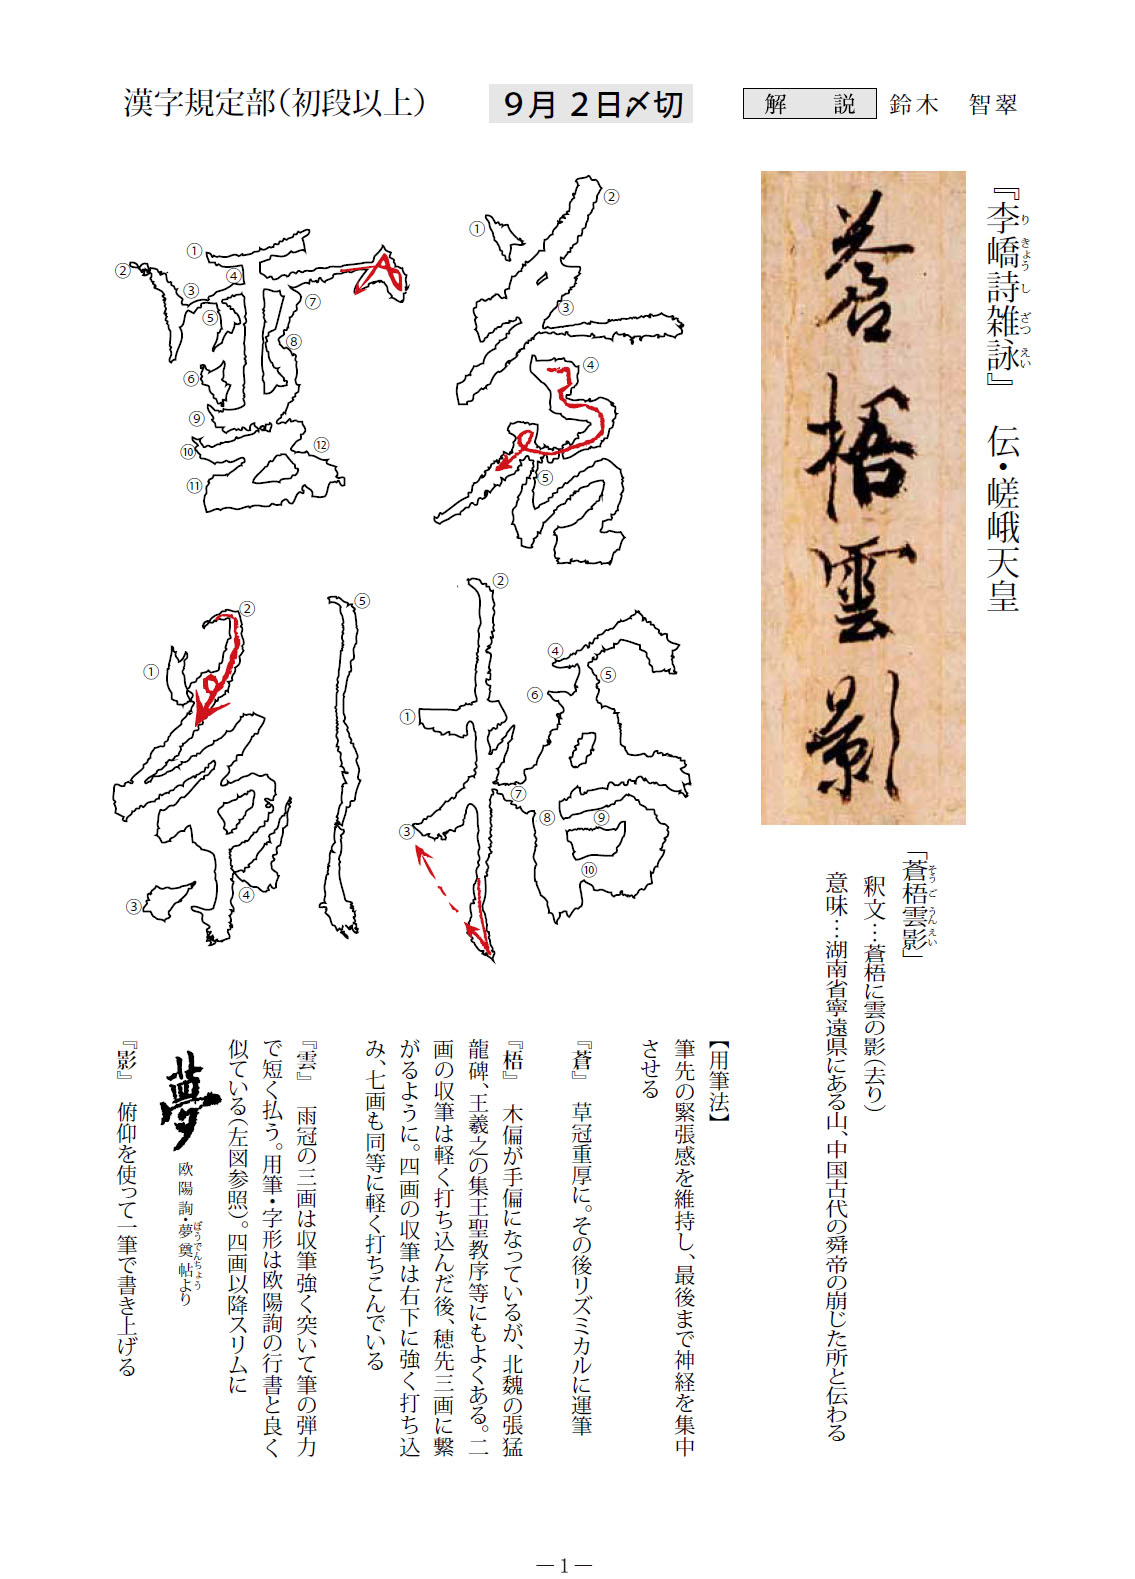 漢字規定部（初段以上）
９月２日〆切
解　説　鈴木　智翠
『李嶠詩雑詠』　伝・嵯峨天皇
り きょう し ざつ えい
蒼梧雲影
「蒼梧雲影」
そう ご うん えい
釈文…蒼梧に雲の影（去り）
意味…湖南省寧遠県にある山、中国古代の舜帝の崩じた所と伝わる
①
②
③
④
⑤
①
②
③
④
⑤
⑥
⑦
⑧
⑨
⑩
①
②
③
④
⑤
⑥
⑦
⑧
⑨
⑩
⑪
⑫
①
②
③
④
⑤
【用筆法】
筆先の緊張感を維持し、最後まで神経を集中
させる
『蒼』　草冠重厚に。その後リズミカルに運筆
『梧』　木偏が手偏になっているが、北魏の張猛
龍碑、王羲之の集王聖教序等にもよくある。二
画の収筆は軽く打ち込んだ後、穂先三画に繋
がるように。四画の収筆は右下に強く打ち込
み、七画も同等に軽く打ちこんでいる
『雲』　雨冠の三画は収筆強く突いて筆の弾力
で短く払う。用筆・字形は欧陽詢の行書と良く
似ている（左図参照）。四画以降スリムに
夢
欧陽詢・夢奠帖より
ぼうでんちょう
『影』　俯仰を使って一筆で書き上げる
― 1 ―